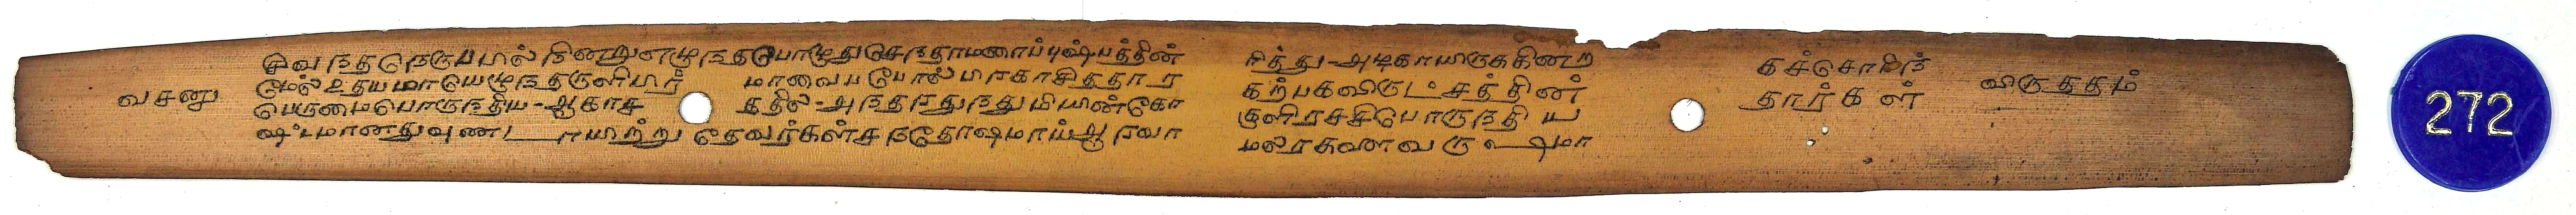 வசனம்
இவந்தநெருபபில் நின்றுஎழுந்தபொழுதுசெந்தாமணாப்புஷ்பத்தின்
மேல் உதயமாயெழுந்தருளியபர் மாவைபபோல பாகாசித்தார்
பெருமைபொருந்திய-ஆகாச த்தில்-அந்தந்துந்துமியின்கோ
ஷ்டமானதுவுண்டாயிற்று தேவர்கள்சந்தோஷமாய்ஆரவா
சித்து-அடிகாயிருககினற
கற்பகவிருட்சத்தின்
குளிர்ச்சிபொருந்திய
மலர்களை வருஷமா
கச்சொரிந்
தார்கள்
விருத்தம்
272